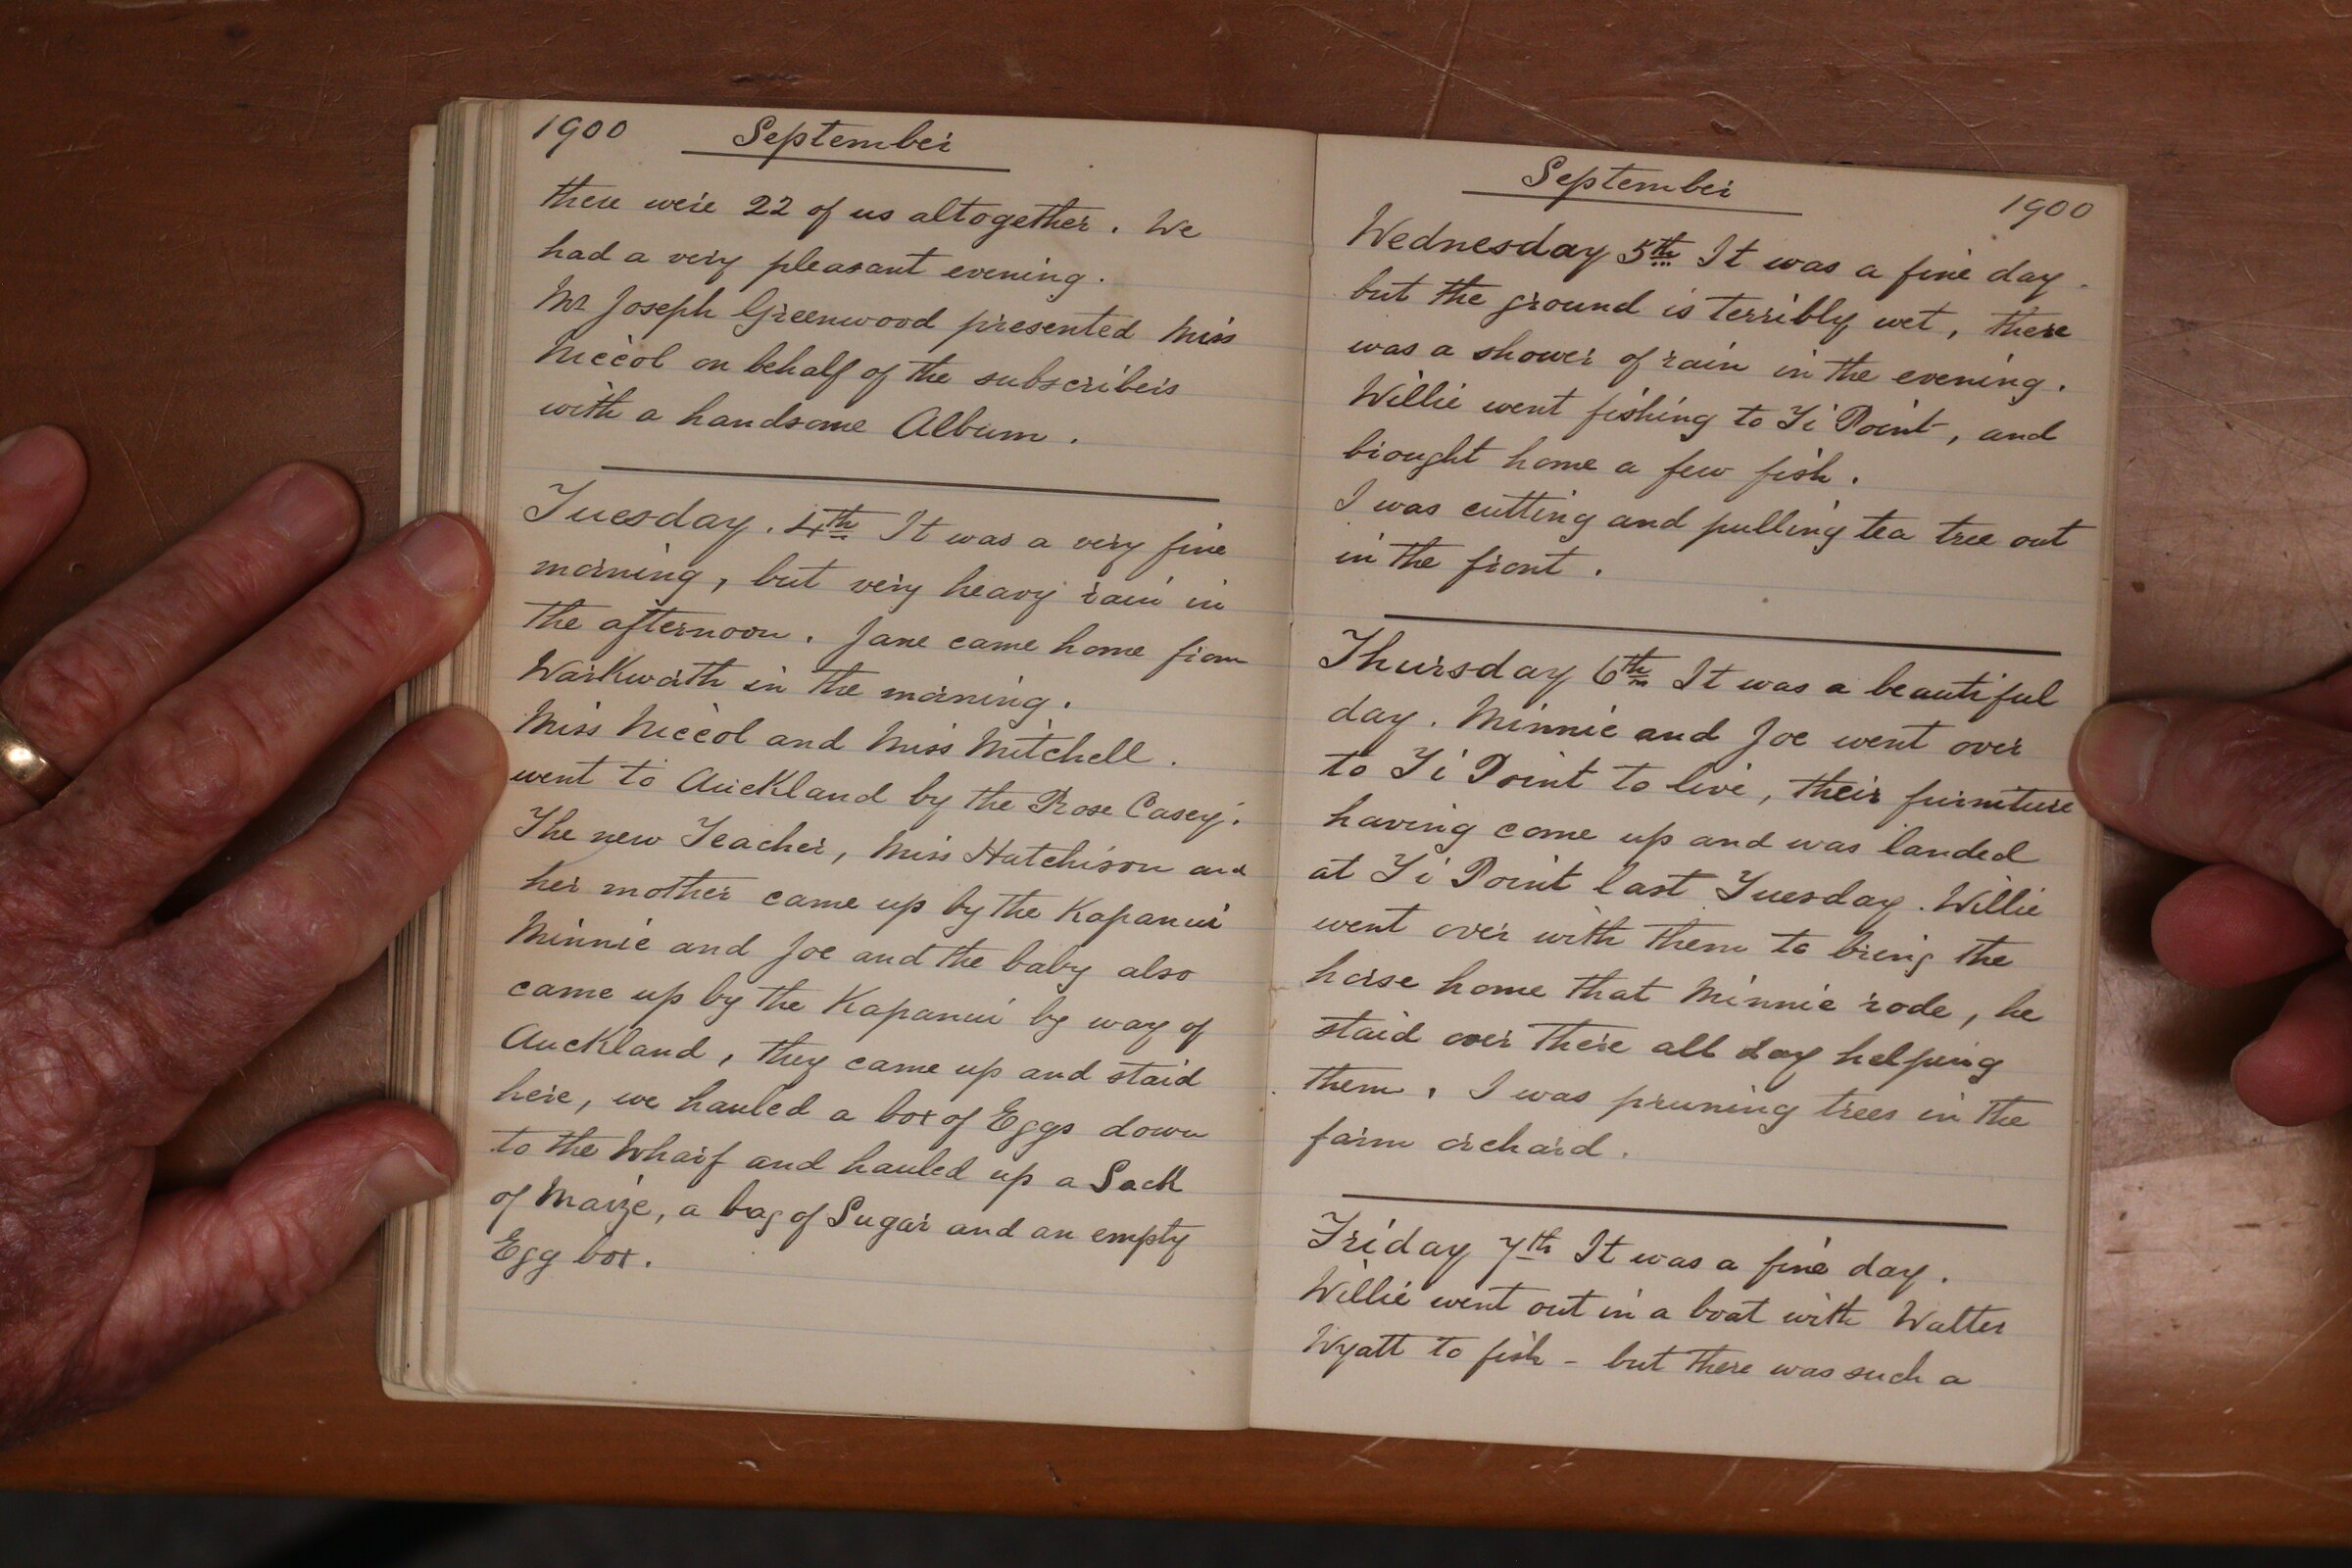 1900 September
there were 22 of us altogether. We
had a very pleasant evening.
Mr Joseph Greenwood presented Miss
Niccol on behalf of the subscribers
with a handsome Album.
Tuesday. 4th It was a very fine
morning, but very heavy rain in
the afternoon. Jane came home from
Warkworth in the morning.
Miss Niccol and Miss Mitchell.
went to Auckland by the Rose Casey.
The new Teacher, Miss Hutchison and
her mother came up by the Kapanui
Minnie and Joe and the baby also
came up by the Kapanui by way of
Auckland, they came up and staid
here, we hauled a box of Eggs down
to the Wharf and hauled up a Sack
of Maize, a bag of Sugar and an empty
Egg box.
September 1900
Wednesday 5th It was a fine day.
but the ground is terribly wet, there
was a shower of rain in the evening.
Willie went fishing to Ti Point, and
brought home a few fish.
I was cutting and pulling tea tree out
in the front.
Thursday 6th It was a beautiful
day. Minnie and Joe went over
to Ti Point to live, their furniture
having come up and was landed
at Ti Point last Tuesday. Willie
went over with them to bring the
horse home that Minnie rode, he
staid over there all day helping
them. I was pruning trees in the
farm orchard.
Friday 7th It was a fine day.
Willie went out in a boat with Walter
Wyatt to fish - but there was such a